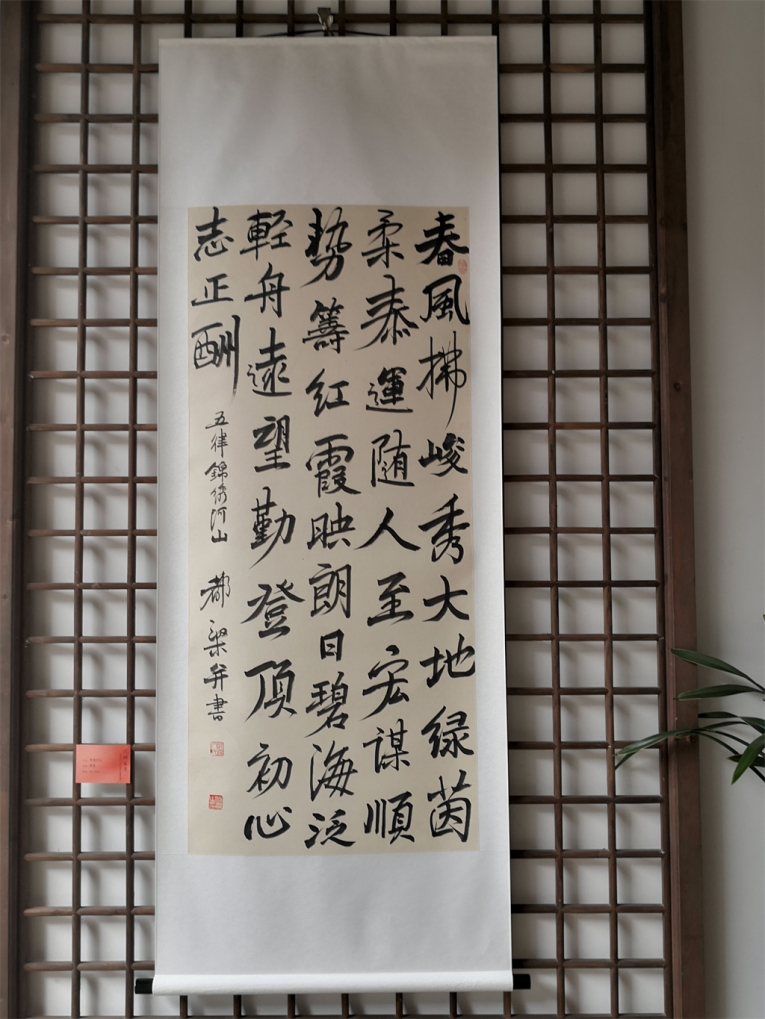 春風拂峻秀大地绿茵
柔泰運随人至宏謀順
勢籌红霞映朗日碧海泛
輕舟遠望勤登顶初心
志正酬
五律錦绣河山
都梁并書